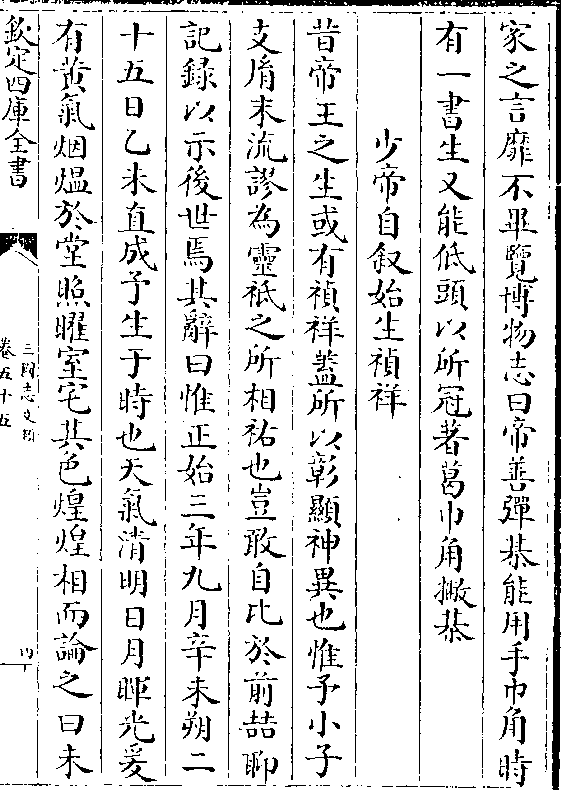 家之言靡不畢覽博物志曰帝善彈棊能用手巾角時
有一書生又能低頭以所冠著葛巾角撇棊
少帝自叙始生禎祥
昔帝王之生或有禎祥蓋所以彰顯神異也惟予小子
支胤末流謬為靈祇之所相祐也豈敢自比於前喆聊
記録以示後世焉其辭曰惟正始三年九月辛未朔二
十五日乙未直成予生于時也天氣清明日月暉光爰
有黄氣烟熅於堂照曜室宅其色煌煌相而論之曰未
欽定四庫全書
三國志文類
卷五十五